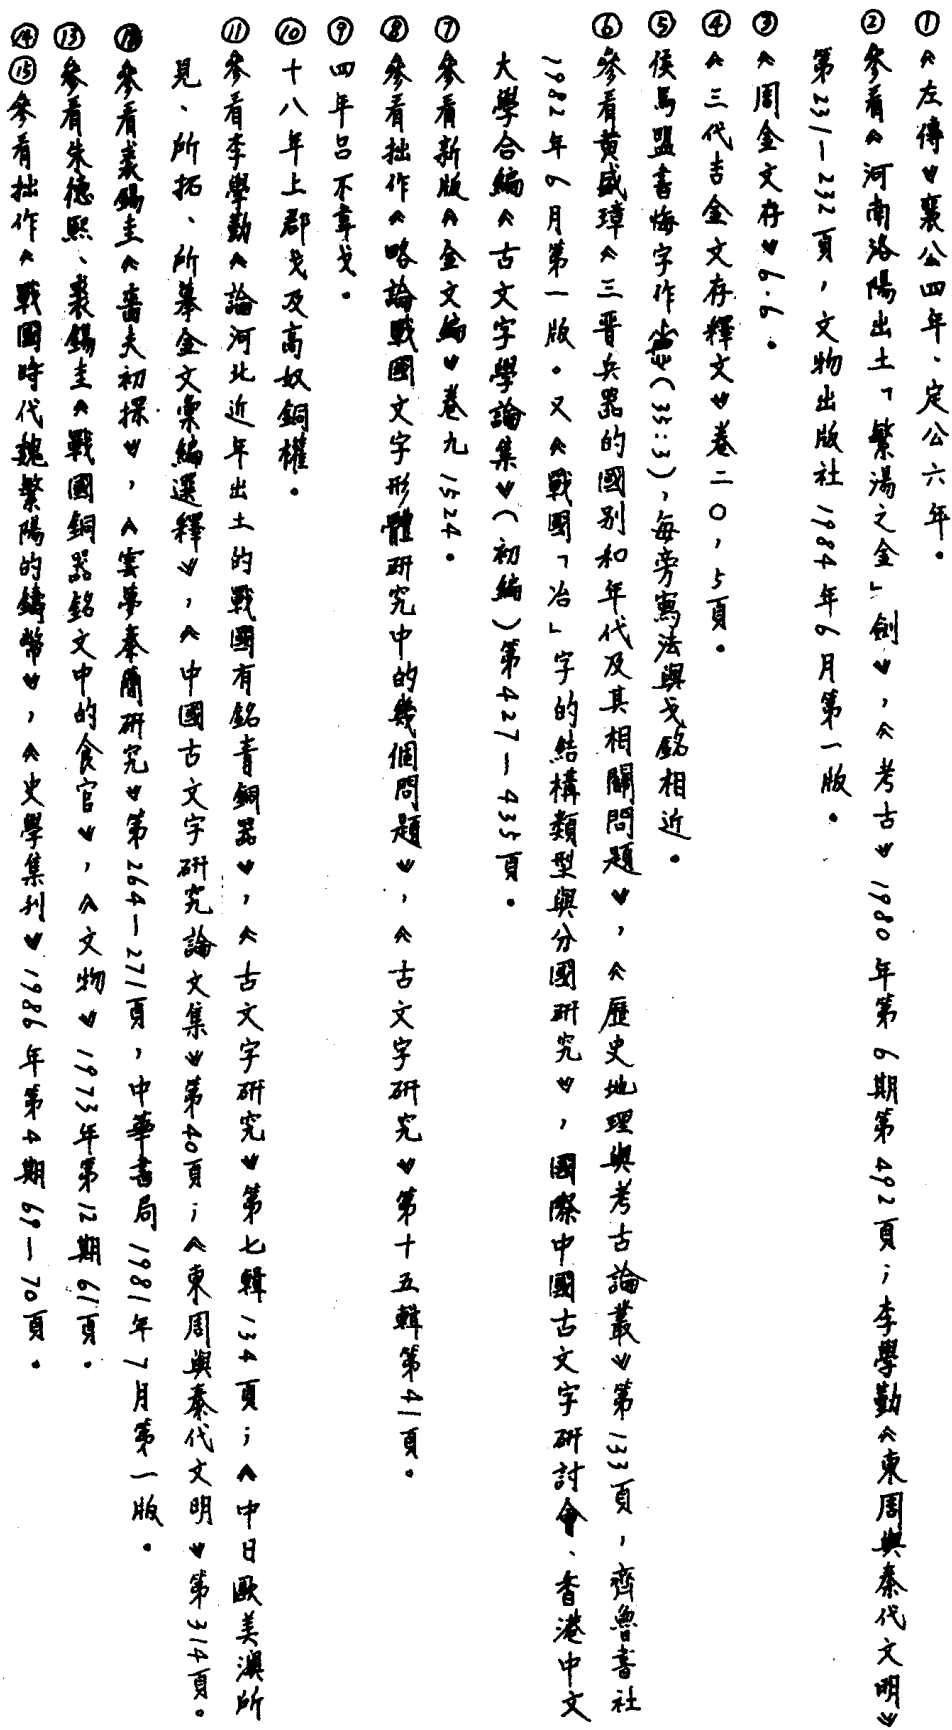 ①《左傳》襄公四年、定公六年。
②參看《河南洛陽出土「繁湯之金」劍》,《考古》1980年第6期第492頁;李學勤《東周與秦代文明》
第231—232頁,文物出版社1984年6月第一版。
③《周金文存》6·6。
④《三代吉金文存釋文》卷二〇,5頁。
⑤侯馬盟書悔字作(35:3),每旁寫法與戈銘相近。
⑥參看黄盛璋《三晋兵器的國别和年代及其相關問題》,《歷史地理與考古論叢》第133頁,齊魯書社
1982年6月第一版。又《戰國「冶」字的結構類型與分國研究》,國際中國古文字研討會、香港中文
大學合編《古文字學論集》(初編)第427—435頁。
⑦參看新版《金文編》卷九1524。
⑧參看拙作《略論戰國文字形體研究中的幾個問題》,《古文字研究》第十五輯第41頁。
⑨四年吕不韋戈。
⑩十八年上郡戈及高奴銅權。
⑪參看李學勤《論河北近年出土的戰國有銘青銅器》,《古文字研究》第七輯134頁;《中日歐美澳所
見、所拓、所摹金文彙編選釋》,《中國古文字研究論文集》第40頁;《東周與秦代文明》第314頁。
⑫參看裘錫圭《嗇夫初探》,《雲夢秦簡研究》第264—271頁,中華書局1981年7月第一版。
⑬參看朱德熙、裘錫圭《戰國銅器銘文中的食官》,《文物》1973年第12期61頁。
⑭⑮參看拙作《戰國時代魏繁陽的鑄幣》,《史學集刊》1986年第4期69—70頁。